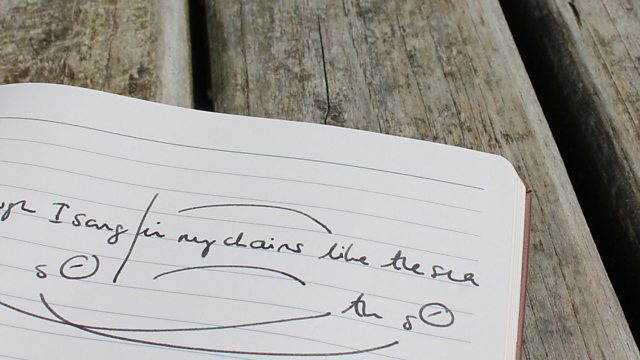 ugh I sang / in my chains like the sea
s ⊖
th s ⊖